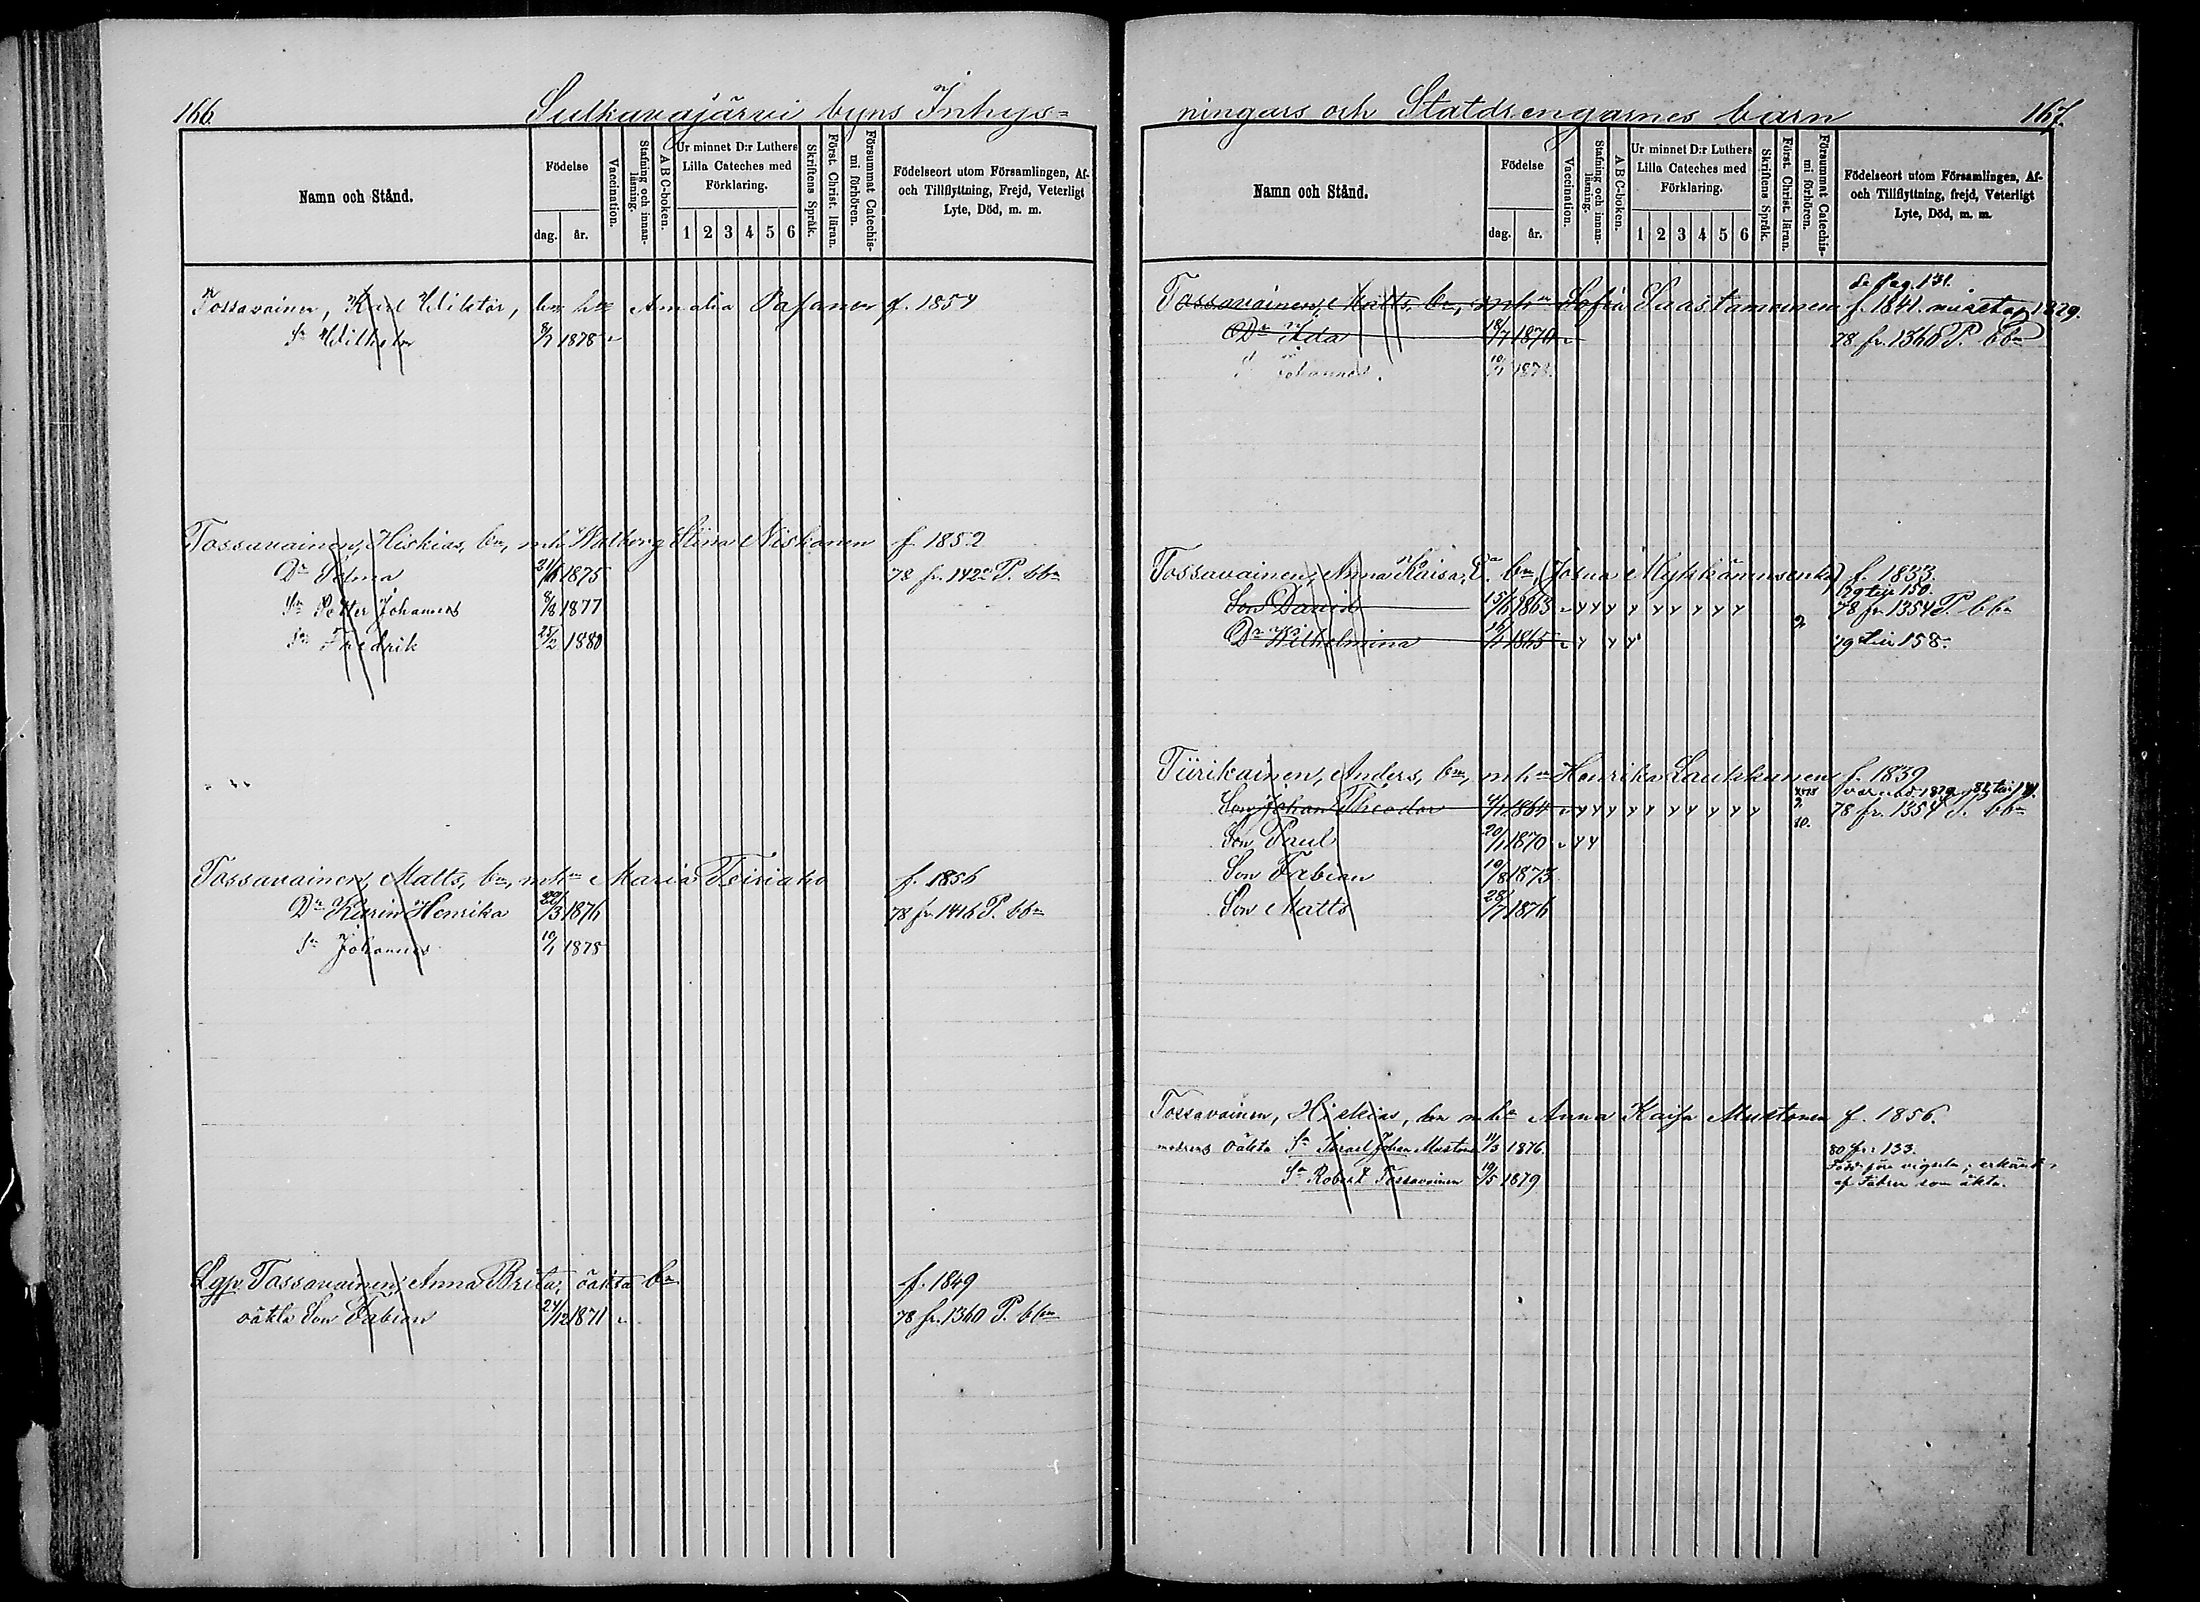 166. Sulkavajärvi byns Inhys=
Namn och Stånd.
Födelse
dag. år.
Vaccination.
Stafning och innanläsning.
ABC-boken.
Ur minnet D:r Luthers Lilla Cateches med Förklaring.
1 2 3 4 5 6
Skriftens Språk.
Först. Christ. läran.
Försummat Catechismi förhören.
Födelseort utom Församlingen, Af- och Tillflyttning, Frejd, Veterligt Lyte, Död, m. m.
Tossavainen, Karl Wiktor, bn hn Amalia f. 1854
Sn Wilhelm 8/7 1878
Tossavainen, Hiskias, bn, mh Walborg Stina Niskanen f. 1852
Dr Selma 1875 78 fr. 1420 P. bbn
Sn Petter Johannes 8/8 1877
Sn Fredrik 25/2 1880
Tossavainen, Matts, bn, mhn Maria f. 1856
Dr Karin Henrika /3 1876 78 fr. 1416 P. bbn
Sn Johannes 19/1 1878
Lgp. Tossavainen, Anna Brita, oäkta bn f. 1849
oäkta Son Fabian 24/12 1871 78 fr. 1360 P. bbn
ningars och Statdrengarnes barn 167.
Namn och Stånd.
Födelse
dag. år.
Vaccination.
Stafning och innanläsning.
ABC-boken.
Ur minnet D:r Luthers Lilla Cateches med Förklaring.
1 2 3 4 5 6
Skriftens Språk.
Först. Christ. läran.
Försummat Catechismi förhören.
Födelseort utom Församlingen, Af- och Tillflyttning, frejd, Veterligt Lyte, Död, m. m.
Se pag. 131.
Tossavainen, Matts, bn, mhn Sofia Saastamoinen f. 1841.
Dr Ida 18/7 1870 78 fr. 1360 P. bbn
Johannes.
Tossavainen, Anna Kaisa, E. bn, (Josua Mykkänens enka) f. 1833.
79 till 150.
Son David 15/6 1863 y y y y y y y y y 78 fr. 1354 P. bbn
Dr Wilhelmina 1865 y y y 2 79 till 158.
Tiirikainen, Anders, bn, mhn Henrika Laukkanen f. 1839
Son Johan Theodor 1864 y y y y y y y y y 78 fr. 1354 P. bbn
Son Paul 20/1 1870 y y
Son Fabian 19/8 1873
Son Matts 28/7 1876
Tossavainen, Hiskias, bn mhn Anna Kaisa Mustonen f. 1856.
modrens oäkta Sn Israel Johan Mustonen 11/3 1876. 80 fr: 133.
Sn Robert Tossavainen 19/5 1879 Född före vigseln; erkänd
af fadren som äkta.